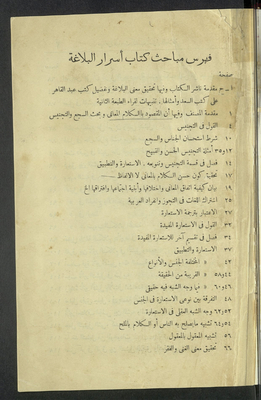 فهرس مباحث كتاب أسرار البلاغة
صفحة
مقدمة ناشر الكتاب وفيها تحقيق معنى البلاغة وتفضيل كتب عبد القاهر
على كتب السعد وأمثالها . تنبيهات لقراء الطبعة الثانية
١ مقدمة المصنف وفيها أن المقصود بالكلام المعاني و بحث السجع والتجنيس
٤ القول في التجنيس
١٠ شرط استحسان الجناس والسجع
١٢و٣٥ أمثلة التجنيس الحسن والقبيح
١٤ فصل في قسمة التجنيس وتنويعه . الاستعارة والتطبيق
١٧ تحقيق كون حسن الكلام بالمعاني لا الالفاظ
١٩ بيان كيفية اتفاق المعاني واختلافها وأينية اجتماعها وافتراقها الخ
٢٥ اشتراك اللغات في التجوز وانفراد العربية
٢٧ الاعتبار بترجمة الاستعارة
٣٢ القول في الاستعارة المفيدة
٣٤ فصل في تقسيم آخر للاستعارة المفيدة
٣٧ الاستعارة والتطبيق
٤٢ « المختلفة الجنس والأنواع
٤٤و٥٨ « القريبة من الحقيقة
٤٦و٦٠ « مما وجه الشبه فيه حقيقي
٤٨ التفرقة بين نوعي الاستعارة في الجنس
٥٢و٦٢ وجه الشبه العقلي في الاستعارة
٥٤و٦٤ تشبيه ما يصلح به الناس أو الكلام بالملح
٥٦ تشبيه المعقول بالمعقول
٦٦ تحقيق معنى الغنى والفقر